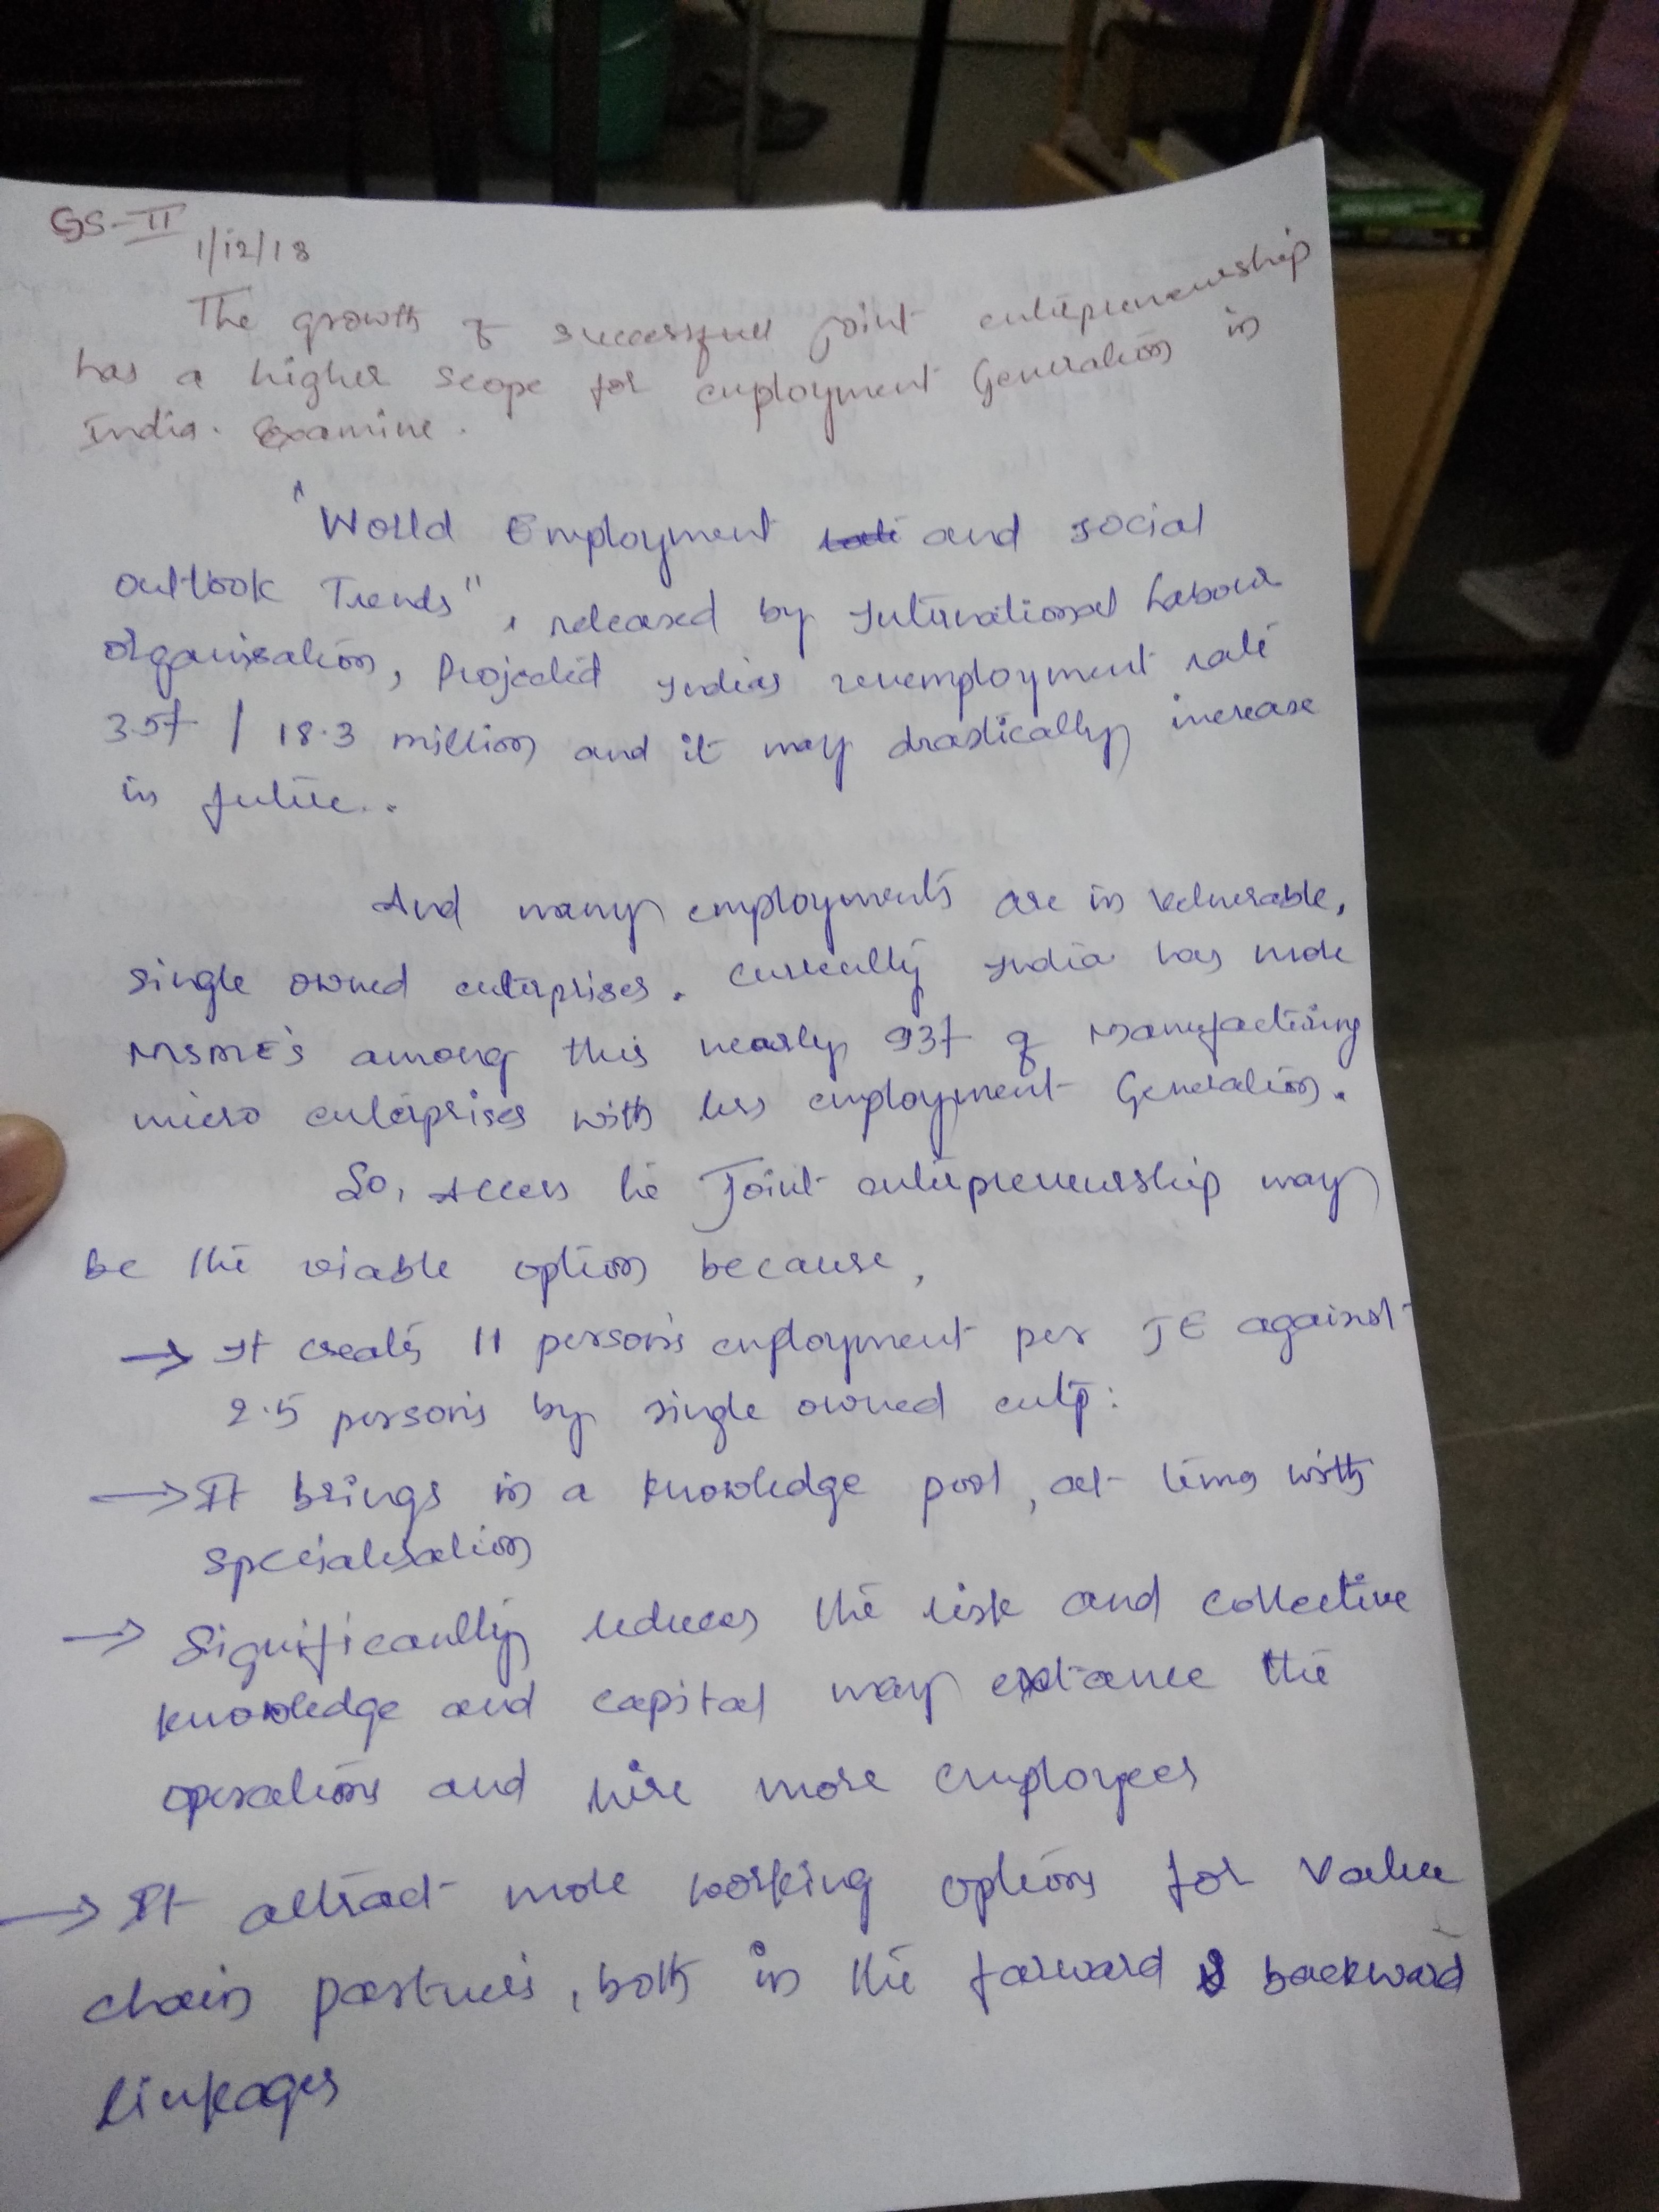 GS-II
1/12/18
The growth of successfull joint entrepreneurship
has a higher scope for employment Generation in
India. Examine.
"World Employment and social
outlook Trends", released by International Labour
Organisation, Projected Indias unemployment rate
3.5% / 18.3 million and it may drastically increase
in future..
And many employments are in vulnerable,
single owned enterprises. Currently India has more
MSME's among this nearly 93% of Manufacturing
micro enterprises with less employment Generation.
So, Access to Joint entrepreneurship may
be the viable option because,
→ It creats 11 person's employment per JE against
2.5 person's by single owned entp:
→ It brings in a knowledge pool, at times with
specialisation
→ Significantly reduces the risk and collective
knowledge and capital may the
operations and hire more employees
→ It attract more working options for value
chain partners, both in the forward & backward
linkages